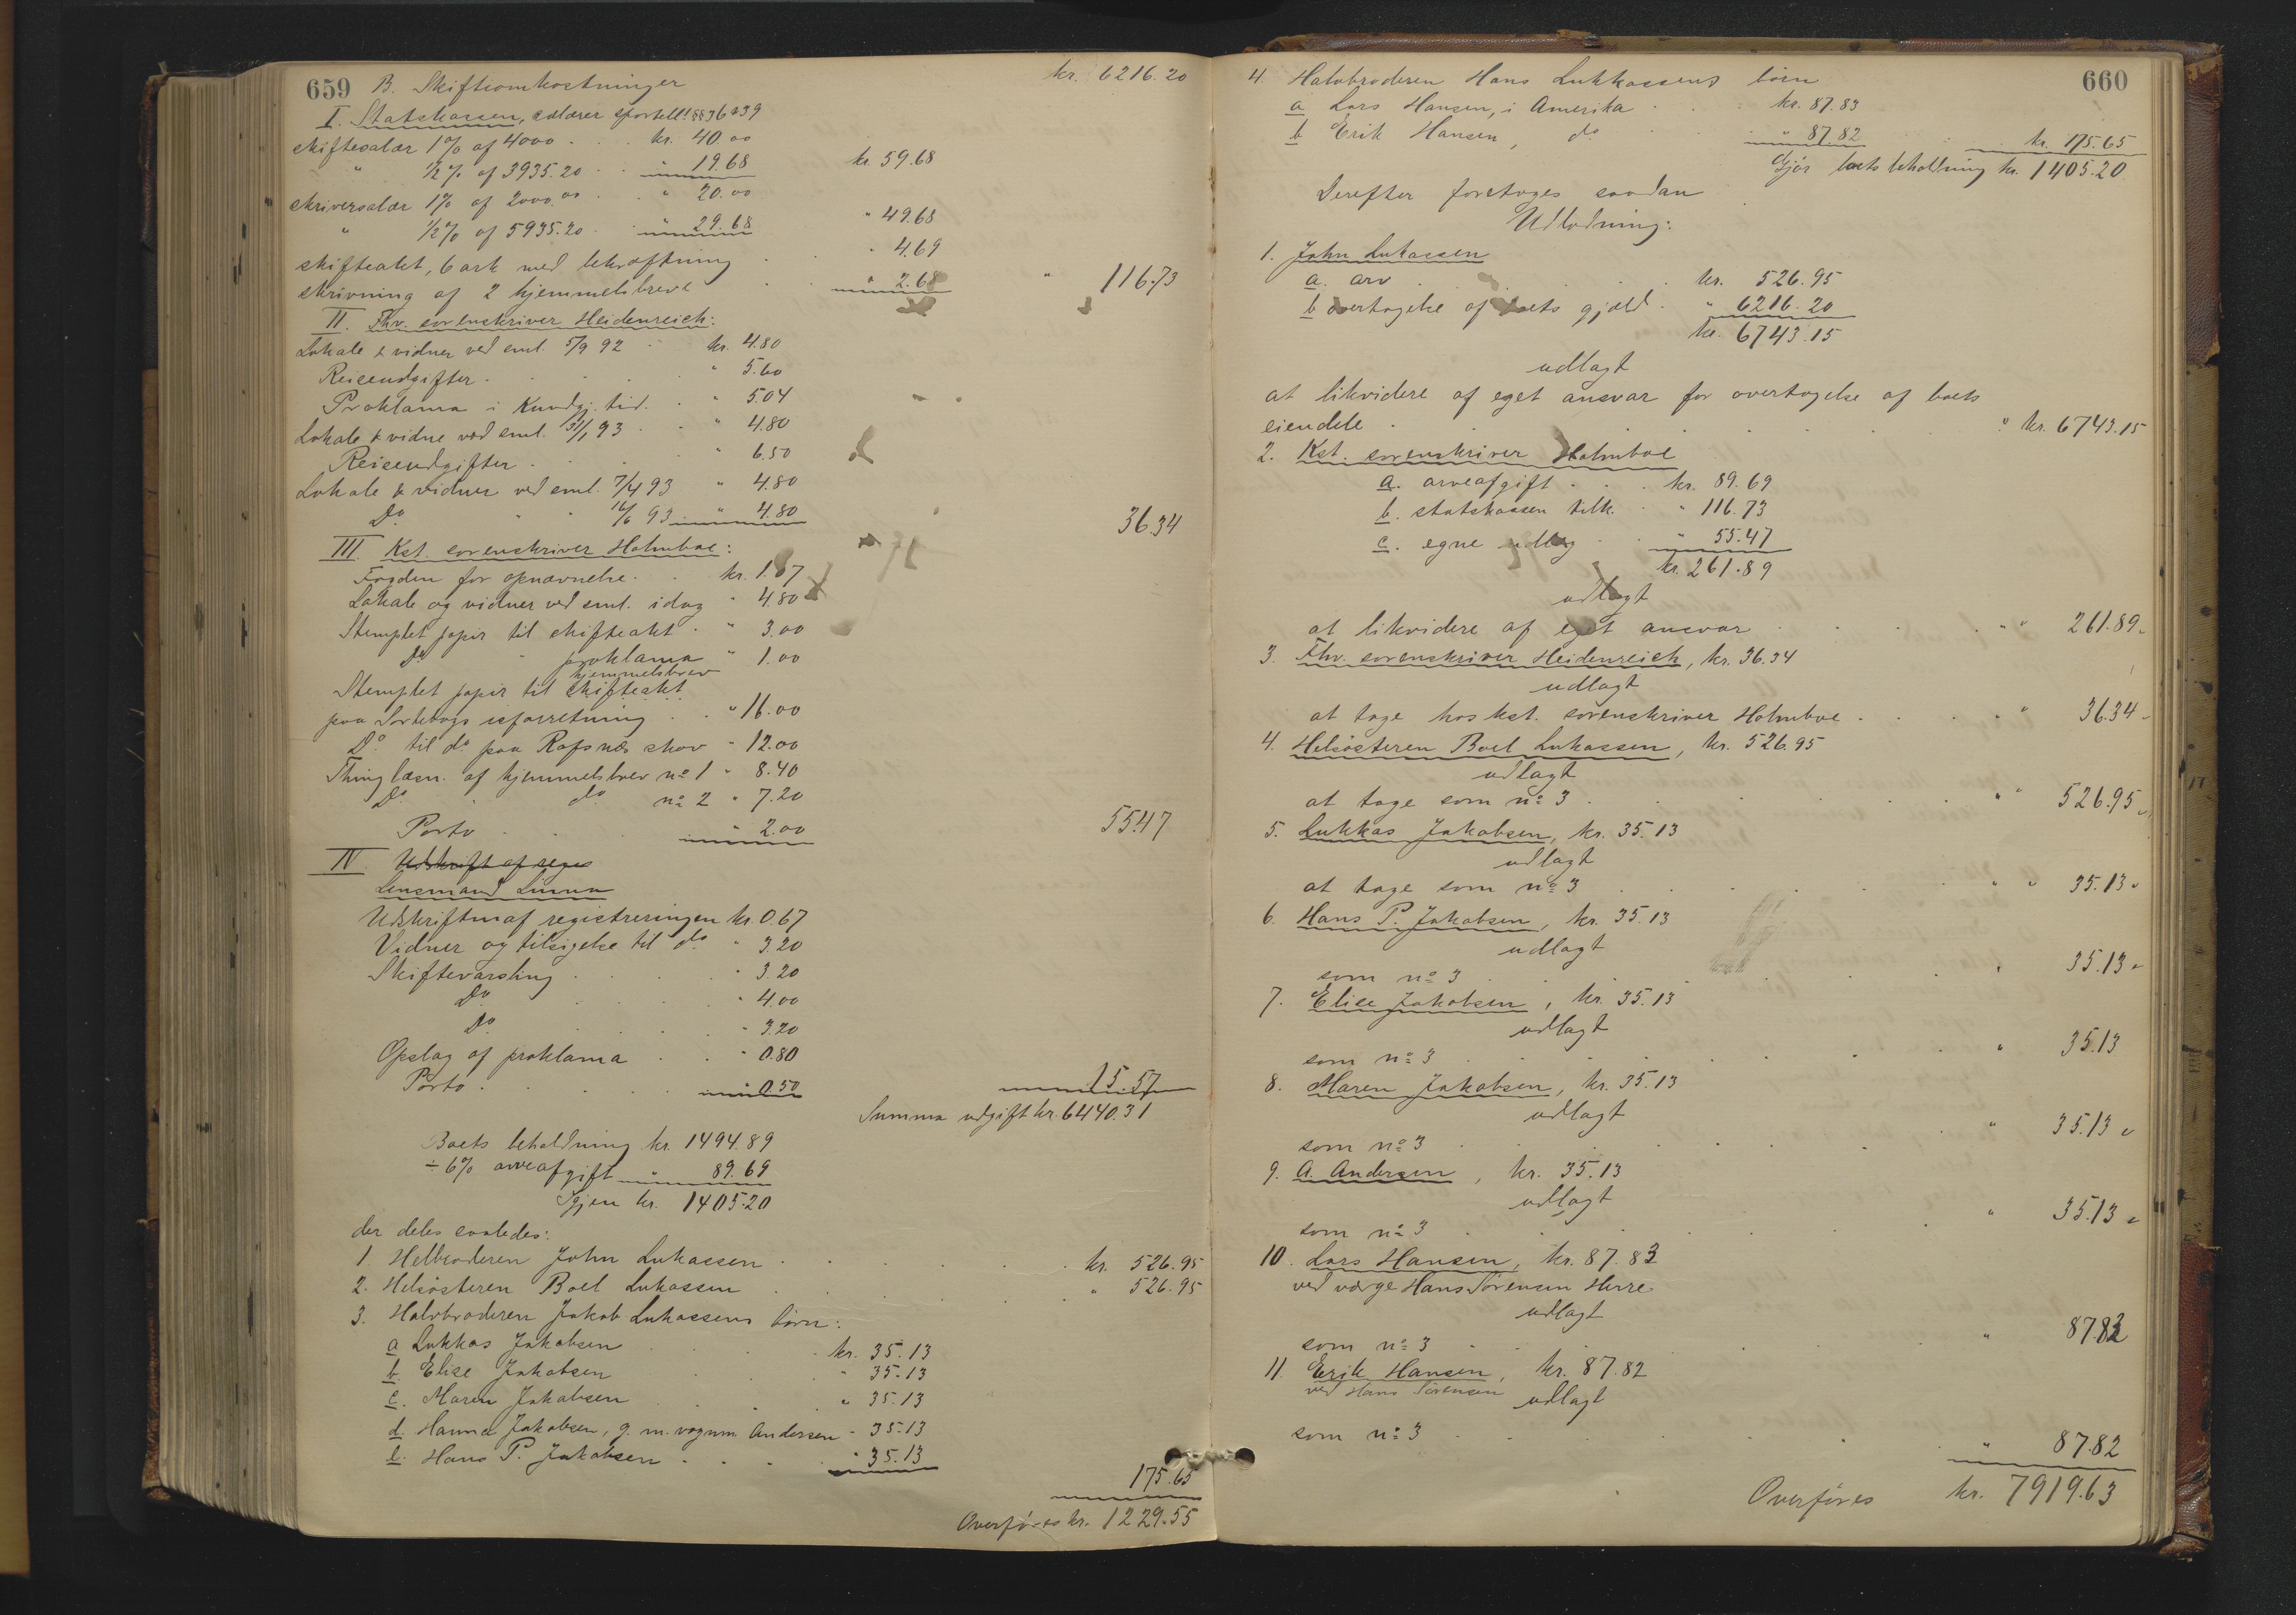 659 B. Skifteomkostninger kr. 6216.20
I. Statskassen, salærer sportell. §§ 36 & 39
skiftesalær 1% af 4000 . . . kr. 40.00
" 1/2% af 3935.20 . . " 19.68 kr. 59.68
skriversalær 1% af 2000.00 . . " 20.00
" 1/2% af 5935.20 . . " 29.68 " 49.68
skifteakt, 6 ark med bekræftning . . . " 4.69
skrivning af 2 hjemmelsbreve . . " 2.68 " 116.73
II. Fhv. sorenskriver Heidenreich:
Lokale & vidner ved sml. 5/9 92 . kr. 4.80
Reiseudgifter . . . . " 5.60
Proklama i Kundgj. tid. . " 5.04
Lokale & vidne ved sml. 31/1 93 . . " 4.80
Reiseudgifter . . . . " 6.50
Lokale & vidner ved sml. 7/4 93 " 4.80
Do " " 16/6 93 " 4.80 36.34
III. Kst. sorenskriver Holmboe:
Fogden for opnævnelse . . kr. 1.07
Lokale og vidner ved sml. idag " 4.80
Stemplet papir til skifteakt . " 3.00
Do " proklama " 1.00
hjemmelsbrev
Stemplet papir til skifteakt
paa Sortebogs isforretning . . " 11.00
Do til do paa Rafsnæs skov " 12.00
Thinglæsn. af hjemmelsbrev no 1 " 8.40
Do . do no 2 " 7.20
Porto . . . . " 2.00 55.47
IV. Udskrift af regis
Lensmand Linna
Udskriften af registreringen kr. 0.67
Vidner og tilsigelse til do " 3.20
Skiftevarsling . . . . " 3.20
Do . . . . " 4.00
Do . . . . " 3.20
Opslag af proklama . . " 0.80
Porto . . . . " 0.50 15.57
Summa udgift kr. 6440.31
Boets beholdning kr. 1494.89
÷ 6% arveafgift " 89.69
Igjen kr. 1405.20
der deles saaledes:
1. Helbroderen John Lukassen . . . . kr. 526.95
2. Helsøsteren Boel Lukassen . . . . " 526.95
3. Halvbroderen Jakob Lukassens børn:
a Lukkas Jakobsen . . . kr. 35.13
b. Elise Jakobsen . . . " 35.13
c. Maren Jakobsen . . . " 35.13
d. Hanna Jakobsen, g. m. vognm. Andersen " 35.13
e. Hans P. Jakobsen . . . " 35.13
175.65
Overføres kr. 1229.55
660
4. Halvbroderen Hans Lukkassens børn
a Lars Hansen, i Amerika . . kr. 87.83
b Erik Hansen, do . . " 87.82 kr. 175.65
Gjør boets beholdning kr. 1405.20
Derefter foretages saadan
Udlodning:
1. John Lukassen
a. arv . . . . kr. 526.95
b overtagelse af boets gjæld . " 6216.20
kr. 6743.15
udlagt
at likvidere af eget ansvar for overtagelse af boets
eiendele . . . . " kr. 6743.15
2. Kst. sorenskriver Holmboe
a. arveafgift . . . kr. 89.69
b. statskassen tilk. . " 116.73
c. egne udlæg . . " 55.47
kr. 261.89
udlagt
at likvidere af eget ansvar . . . . " " 261.89
3. Fhv. sorenskriver Heidenreich, kr. 36.34
udlagt
at tage hos kst. sorenskriver Holmboe . . . . " 36.34
4. Helsøsteren Boel Lukassen, kr. 526.95
udlagt
at tage som no 3 . . . . " " 526.95
5. Lukkas Jakobsen, kr. 35.13
udlagt
at tage som no 3 . . . . " " 35.13
6. Hans P. Jakobsen, kr. 35.13
udlagt
som no 3 . . . . " 35.13
7. Elise Jakobsen, kr. 35.13
udlagt
som no 3 . . . . " 35.13
8. Maren Jakobsen, kr. 35.13
udlagt
som no 3 . . . . " 35.13
9. A. Andersen, kr. 35.13
udlagt
som no 3 . . . . " 35.13
10. Lars Hansen, kr. 87.83
ved værge Hans Sørensen Herre
udlagt
som no 3 . . . . " 87.83
11. Erik Hansen, kr. 87.82
ved Hans Sørensen udlagt
som no 3 . . . . " 87.82
Overføres kr. 7919.63